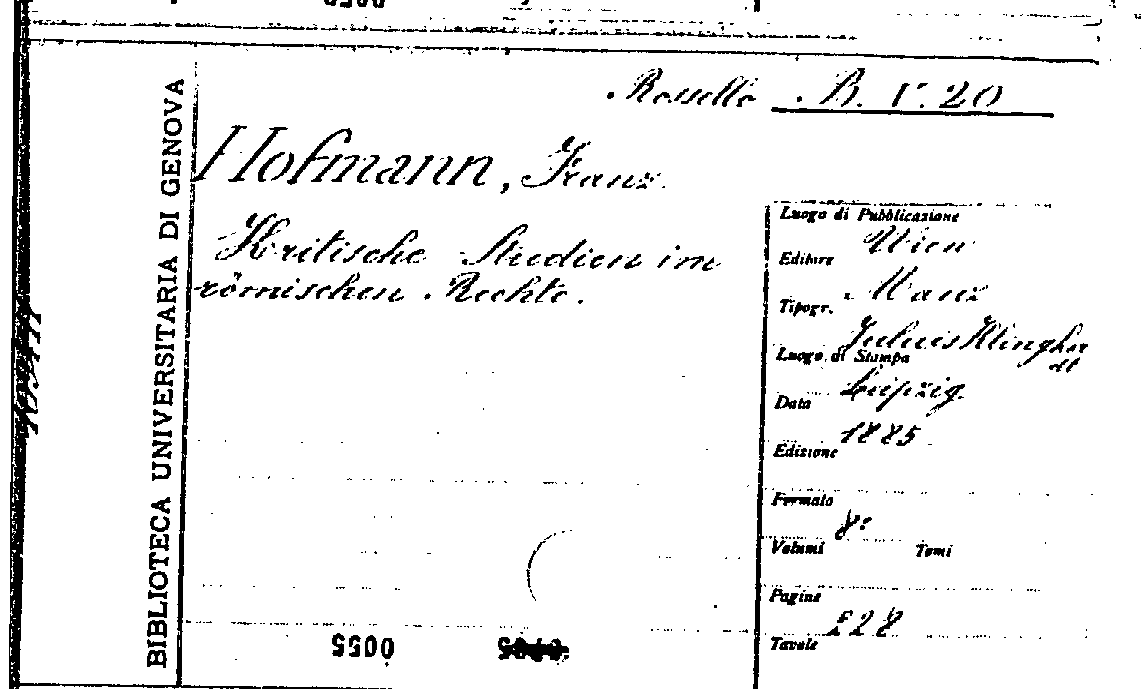 Rossello B. V. 20
BIBLIOTECA UNIVERSITARIA DI GENOVA
Hofmann, Franz.
Kritische Studien im
römischen Rechte.
Luogo di Pubblicazione
Wien
Editore
Manz
Tipogr.
Julius Klinkhar
dt
Luogo di Stampa
Leipzig.
Data
1885
Edizione
Formato
8°
Volumi Tomi
Pagine
228
Tavole
0055